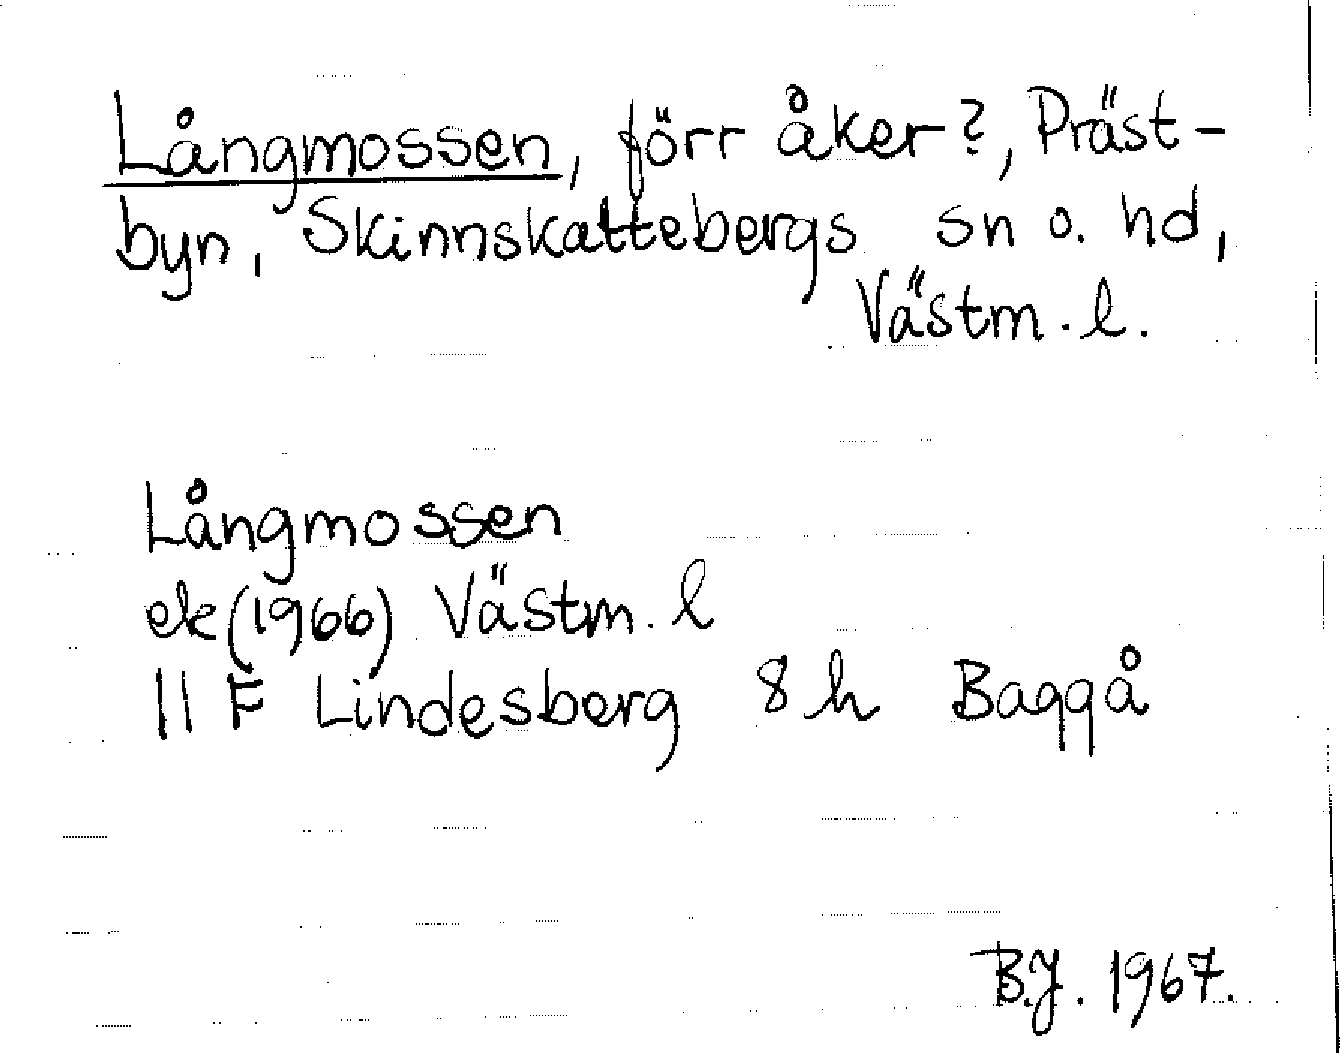 Långmossen, förr åker?, Präst-
byn, Skinnskattebergs sn o. hd,
Västm. l.
Långmossen
ek (1966) Västm. l
11 F Lindesberg 8 h Baggå
B.J. 1967.